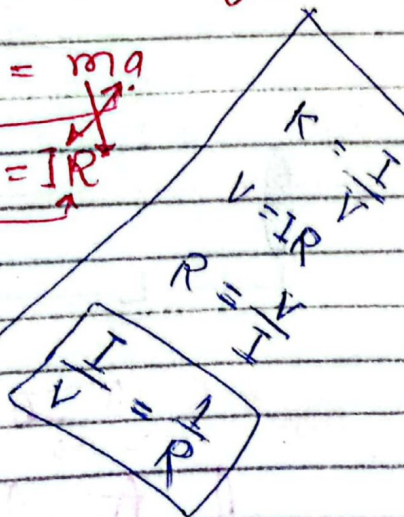 = ma
= IR
K = I/V
V = IR
R = V/I
I/V = 1/R